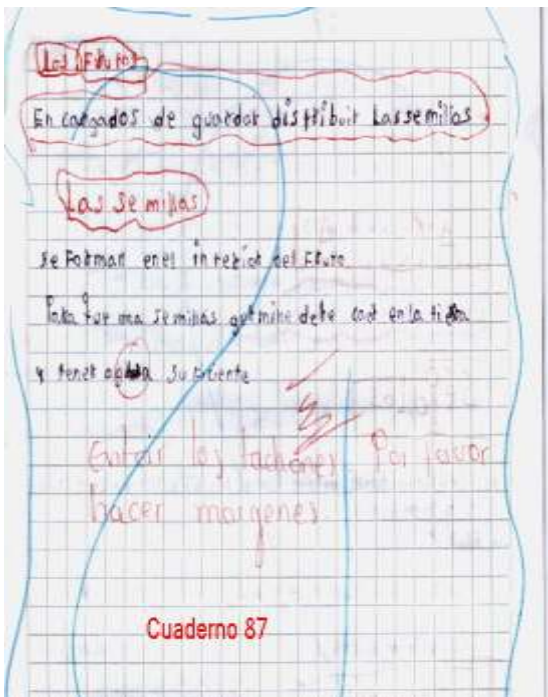 Los Frutos
En cargados de guardar distribuir Las semillas
Las Semillas
se Forman en el interior del Fruto
Para que una semillas germine debe caer en la tierra
y tener agua suficiente
Evitar los tachones Por favor
hacer margenes
Cuaderno 87